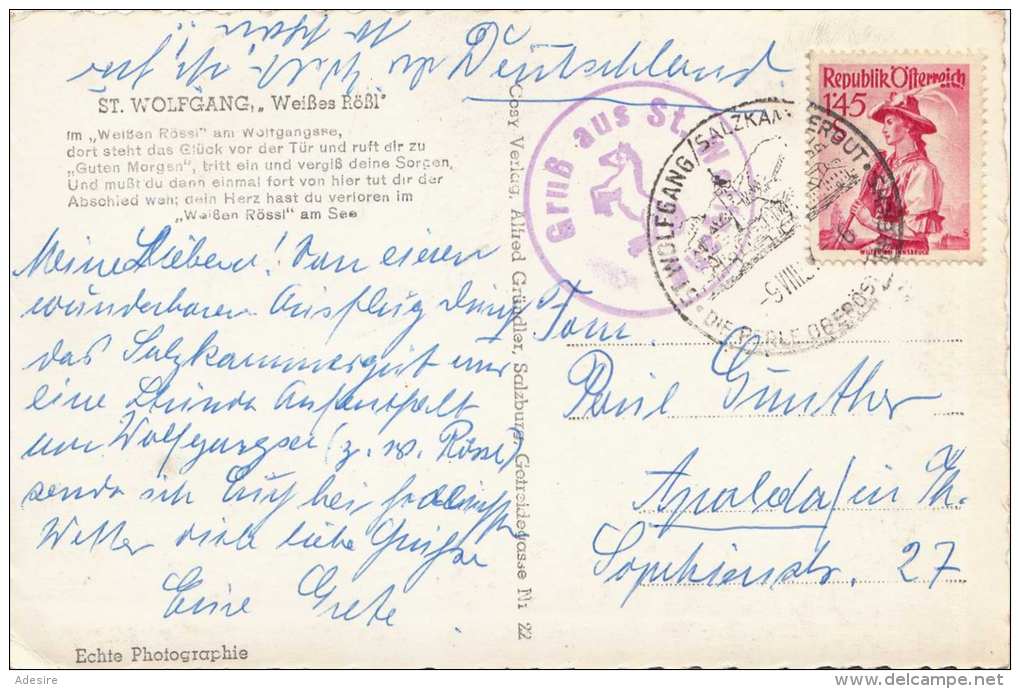 Deutschland
Republik Österreich
145
ST. WOLFGANG, „Weißes Rößl"
Im „Weißen Rössl" am Wolfgangsee,
dort steht das Glück vor der Tür und ruft dir zu
„Guten Morgen", tritt ein und vergiß deine Sorgen,
Und mußt du dann einmal fort von hier tut dir der
Abschied weh; dein Herz hast du verloren im
„Weißen Rössl" am See
Gruß aus St. Wolfgang
ST. WOLFGANG/SALZKAMMERGUT
DIE PERLE OBERÖST
-9.VIII.5
Cosy Verlag, Alfred Gründler, Salzburg, Getreidegasse Nr 22
Meine Lieben! Von einem
wunderbaren Ausflug durch
das Salzkammergut und
eine Stunde Aufenthalt
am Wolfgangsee (z. w. Rössl)
sende ich Euch bei
Wetter viele liebe Grüsse
Eure Grete
Fam.
Paul Günther
Apolda/in Th.
Sophienstr. 27
Echte Photographie
Adesire
delcampe.net